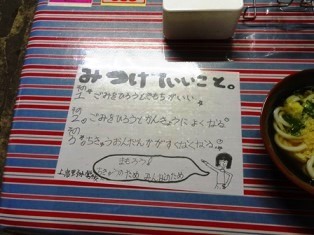 みつけ いいこと。
1. ごみをひろうと きもちがいい
2. ごみをひろうとかんきょうによくなる。
3. ちきゅうおんだんかがすくなくなる。
まもろう
ちきゅうのため みんなのため